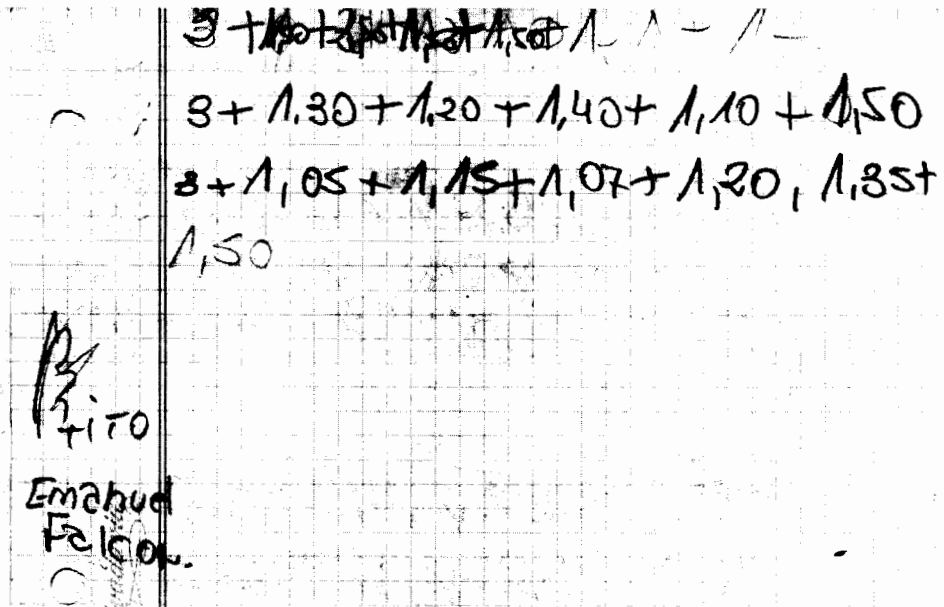 3 + 1,30 + 1,20 + 1,40 + 1,10 + 1,50
3 + 1,05 + 1,15 + 1,07 + 1,20, 1,35+
1,50
Tito
Emanuel
Falcon.